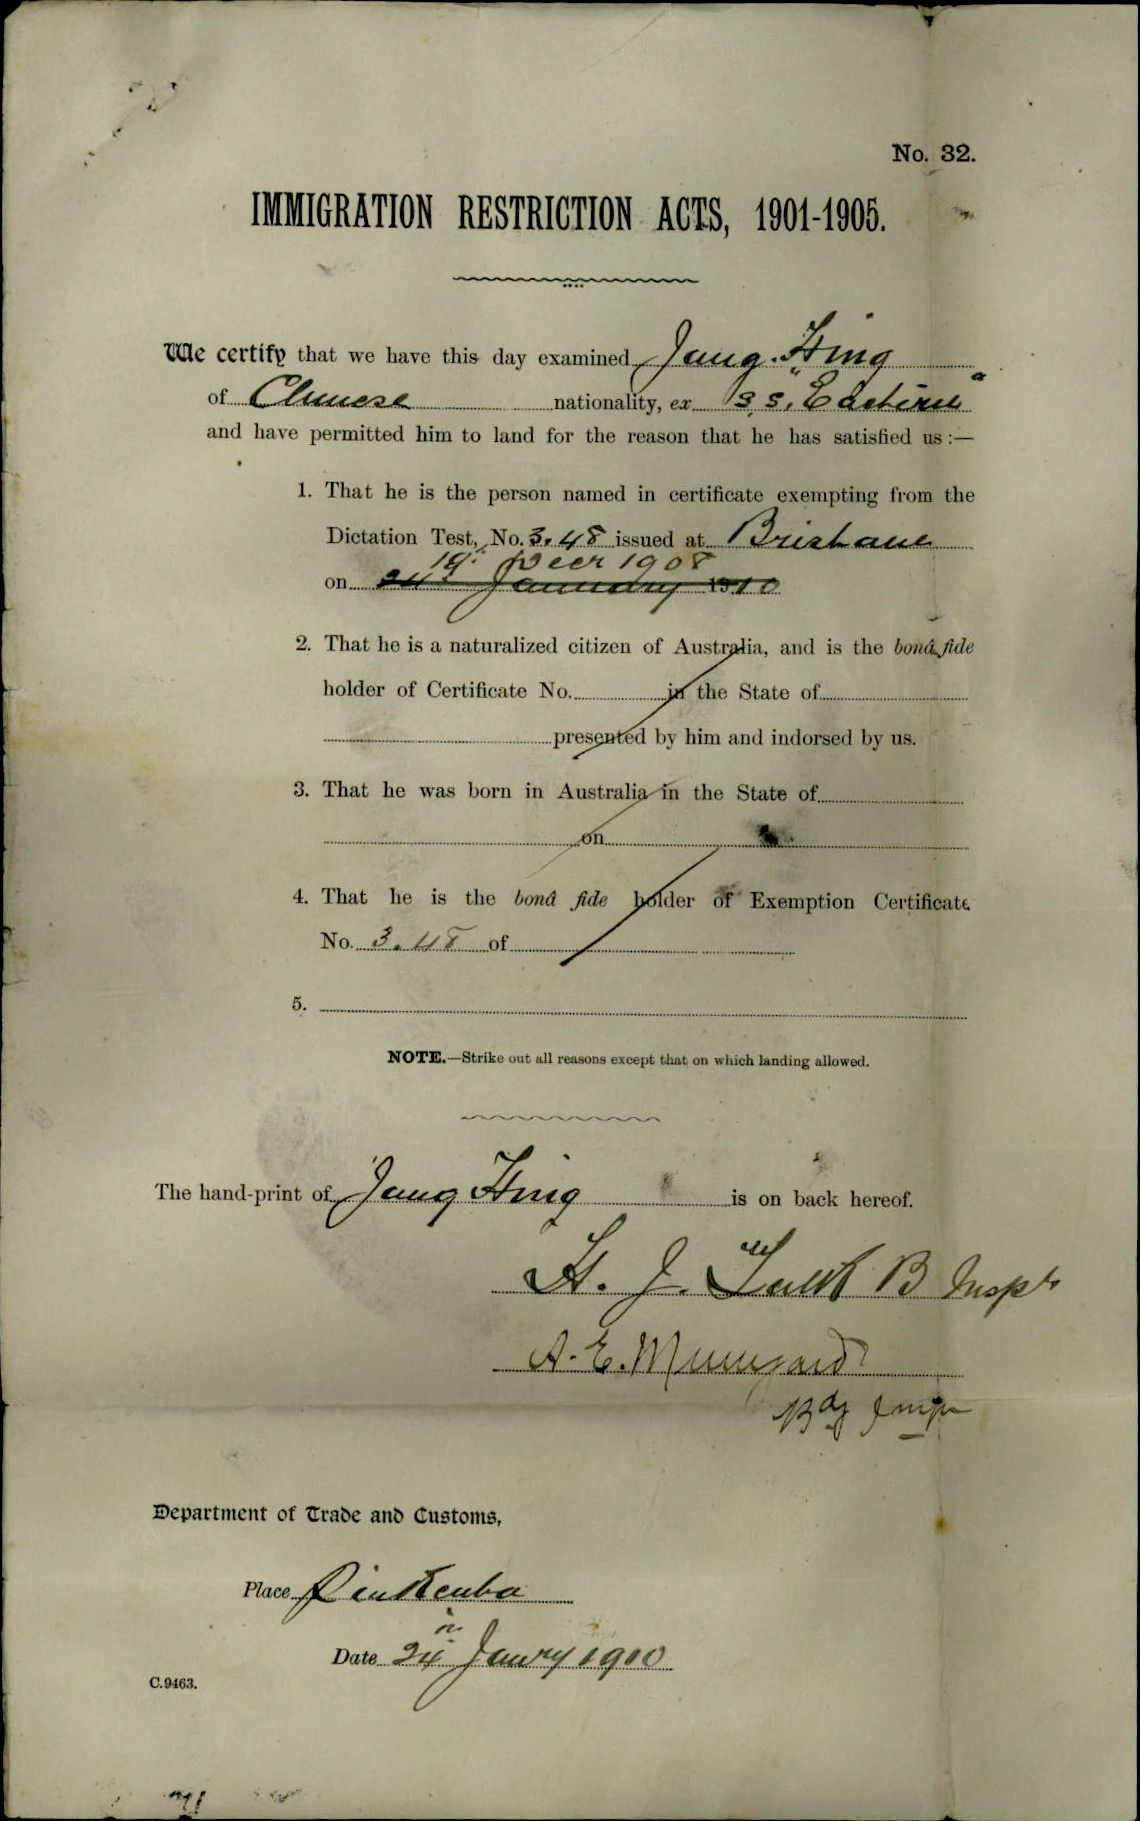 No. 32.
IMMIGRATION RESTRICTION ACTS, 1901-1905.
We certify that we have this day examined Jang Hing
of Chinese nationality, ex "S.S. Eastern"
and have permitted him to land for the reason that he has satisfied us :—
1. That he is the person named in certificate exempting from the
Dictation Test, No. 3.48 issued at Brisbane
19th Decr 1908
on 24th January 1910
2. That he is a naturalized citizen of Australia, and is the bonâ fide
holder of Certificate No. in the State of
presented by him and indorsed by us.
3. That he was born in Australia in the State of
on
4. That he is the bonâ fide holder of Exemption Certificate
No. 3.48 of
5.
NOTE.—Strike out all reasons except that on which landing allowed.
The hand-print of Jang Hing is on back hereof.
H. J. B Inspr
A. E.
Department of Trade and Customs,
Place Pinkenba
Date 24th Janry 1910
C.9463.